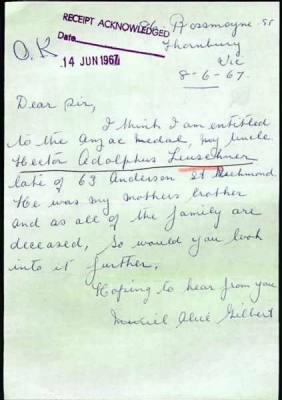 RECEIPT ACKNOWLEDGED
Date
14 JUN 1967
O.K
86 Rossmoyne St
Thornbury
Vic
8-6-67.
Dear Sir,
I think I am entitled
to the Anzac medal, my uncle
Hector Adolphus Leuschner
late of 63 Anderson St Richmond
He was my mothers brother
and as all of the family are
deceased, So would you look
into it further.
Hoping to hear from you
Muriel Gilbert